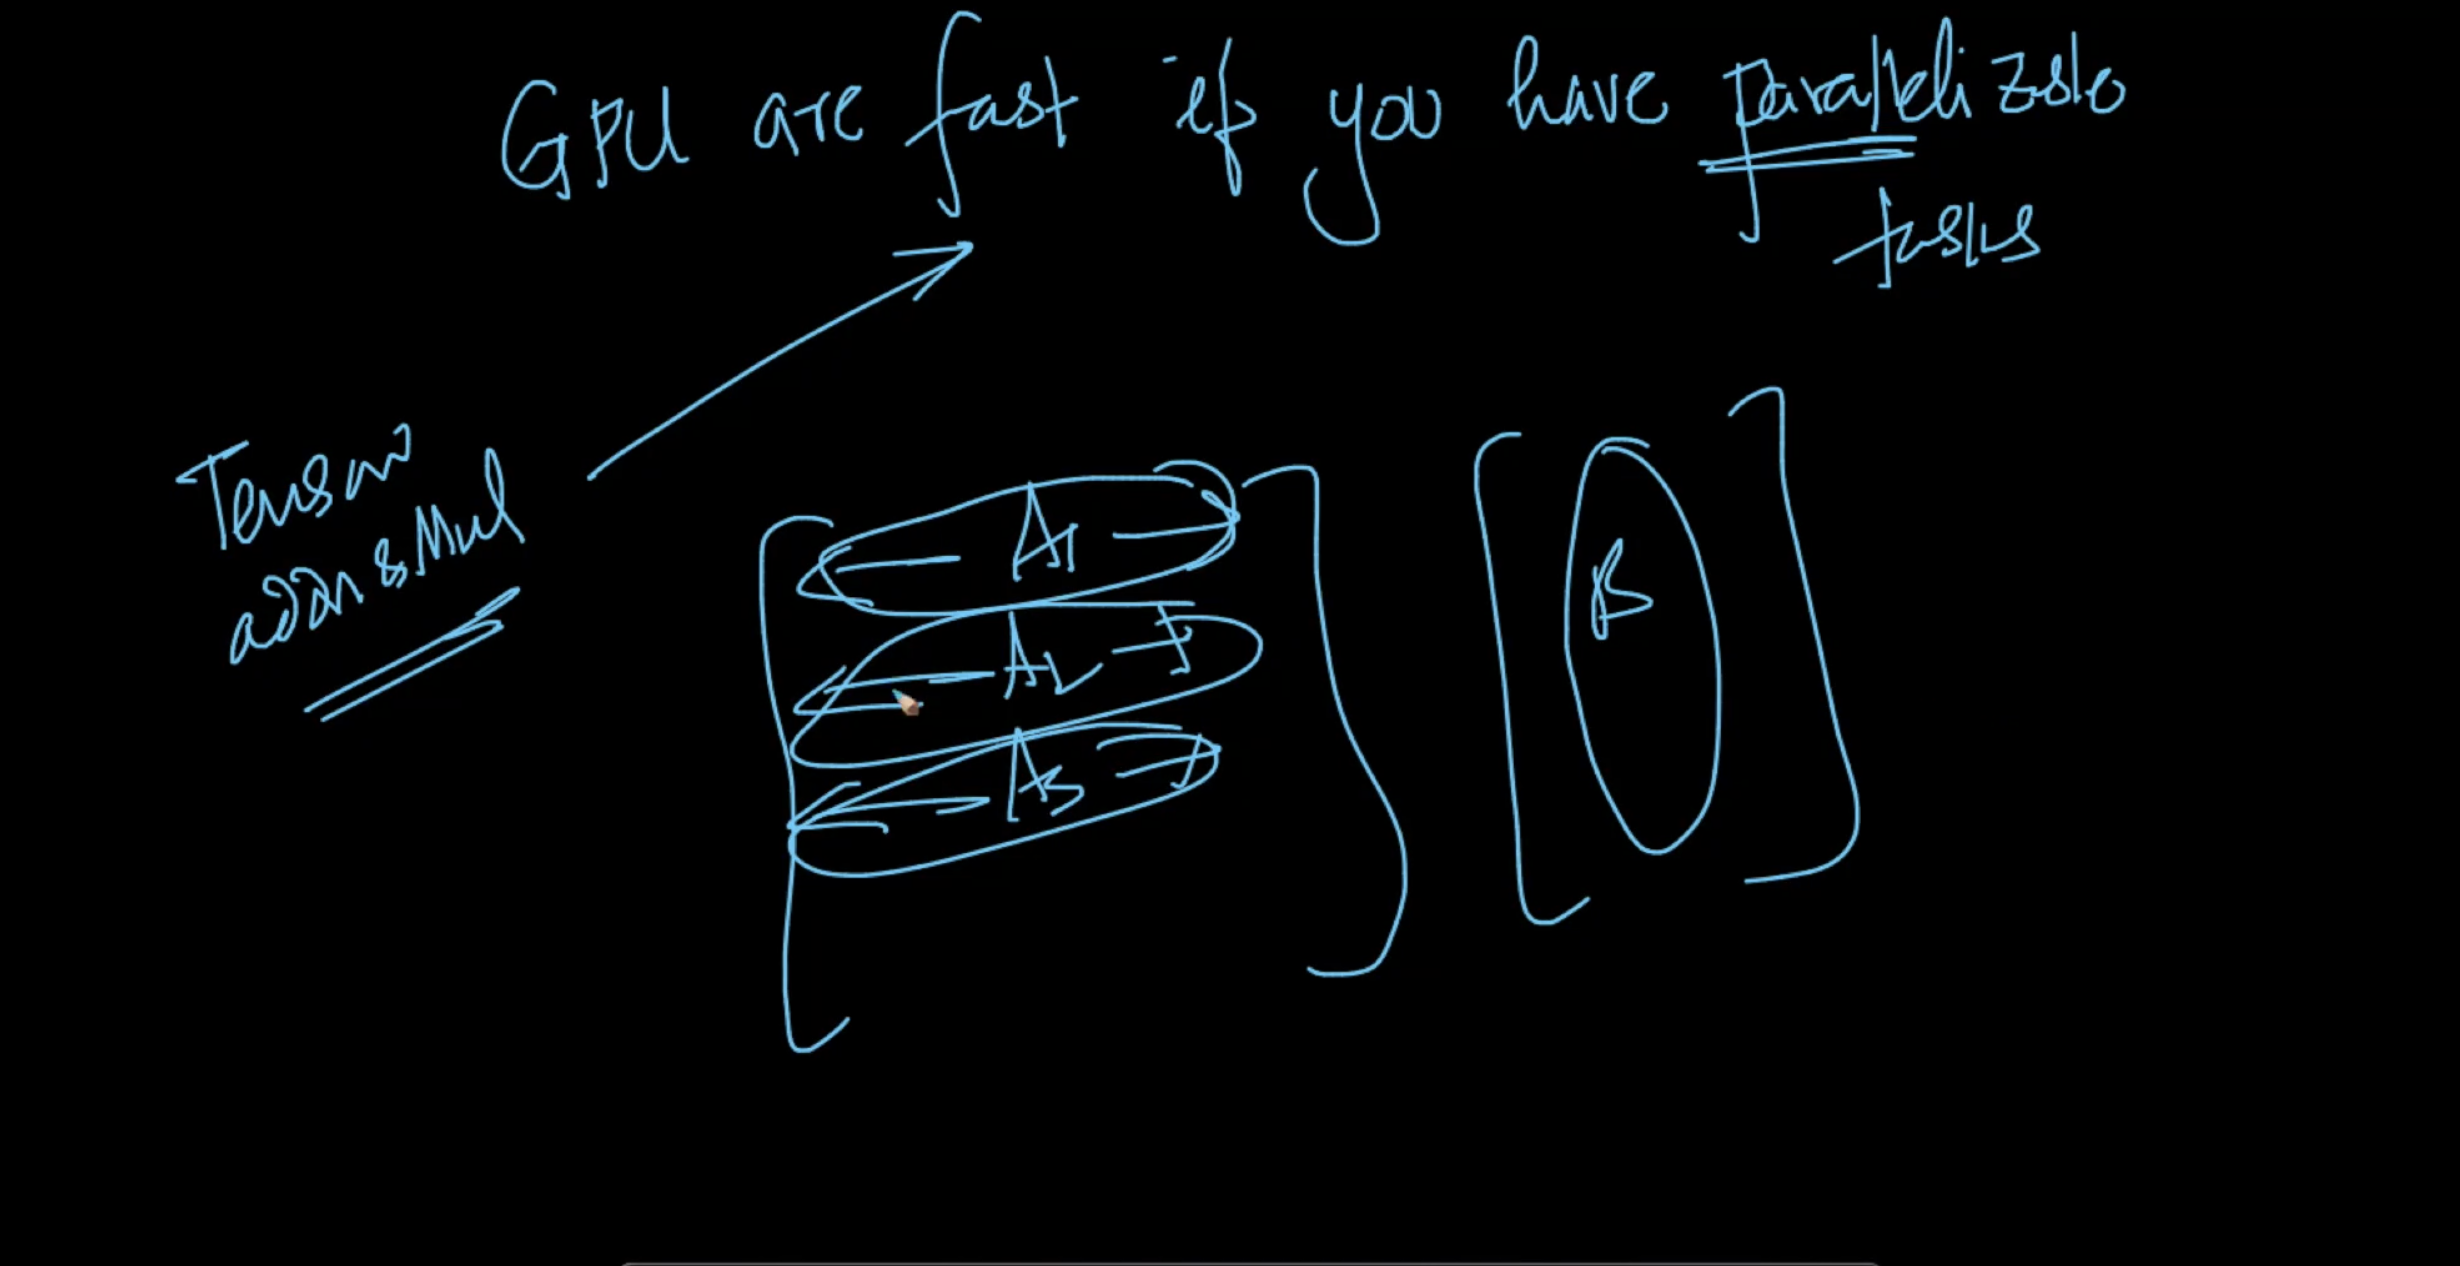 GPU are fast if you have parallelizable
tasks
Tensor
addn & Mul
A1
A2
A3
B